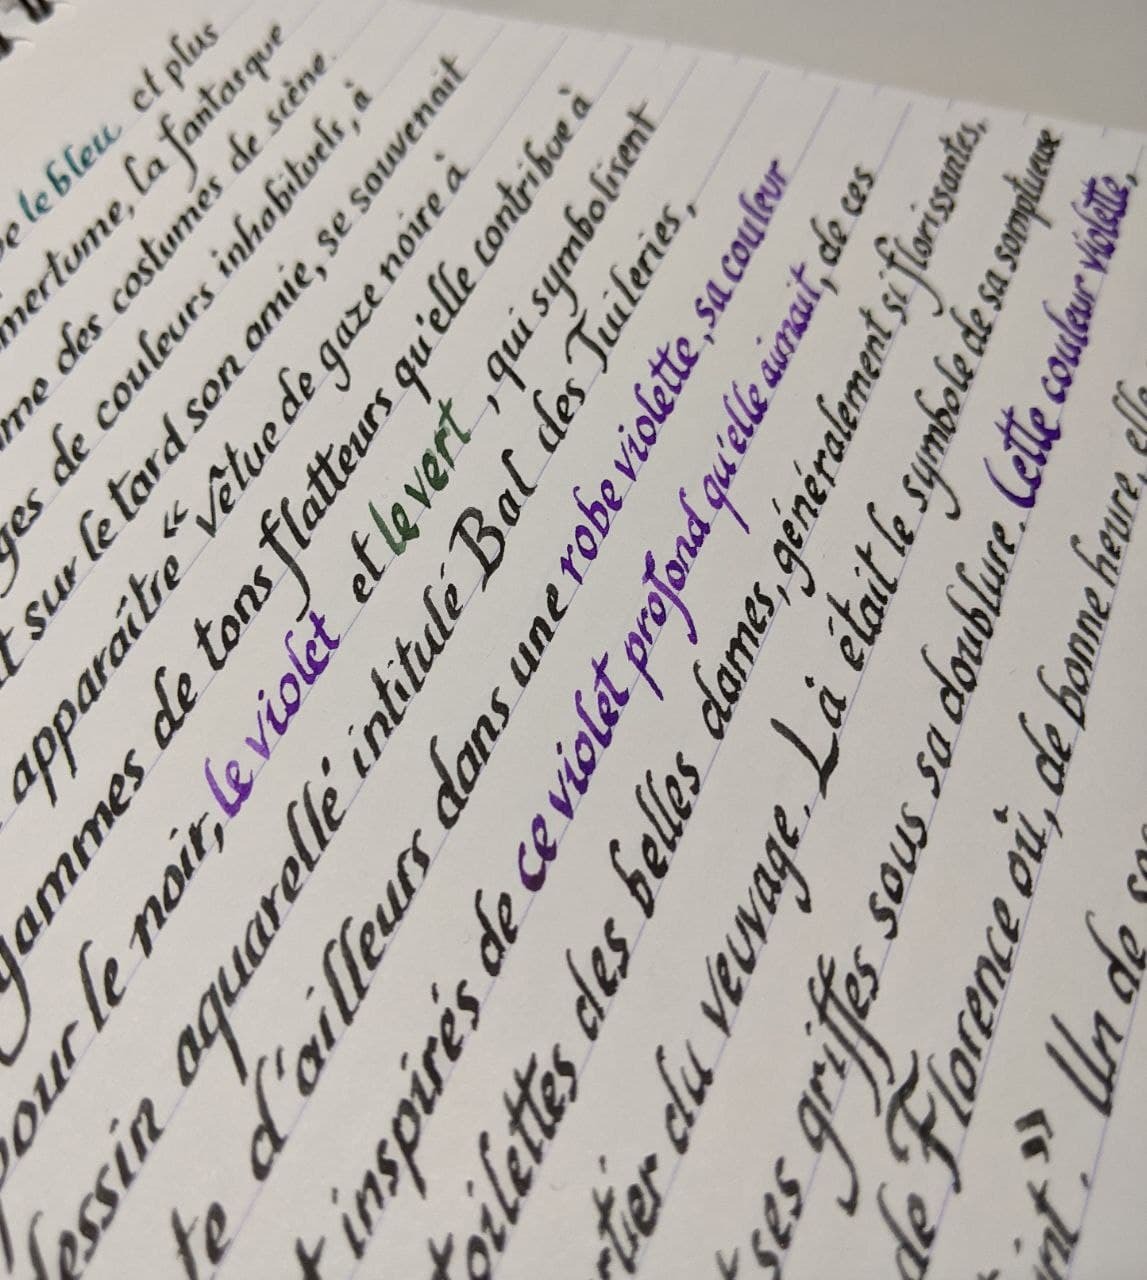 le bleu et plus
la fantasque
des costumes de scène.
de couleurs inhabituels, à
sur le tard son amie, se souvenait
apparaître « vêtue de gaze noire à
gammes de tons flatteurs qu'elle contribue à
pour le noir, le violet et le vert, qui symbolisent
aquarellé intitulé Bal des Tuileries,
d'ailleurs dans une robe violette, sa couleur
inspirés de ce violet profond qu'elle aimait, de ces
toilettes des belles dames, généralement si florissantes,
du veuvage. Là était le symbole de sa somptueuse
ses griffes sous sa doublure. Cette couleur violette,
de Florence où, de bonne heure, elle
» Un de